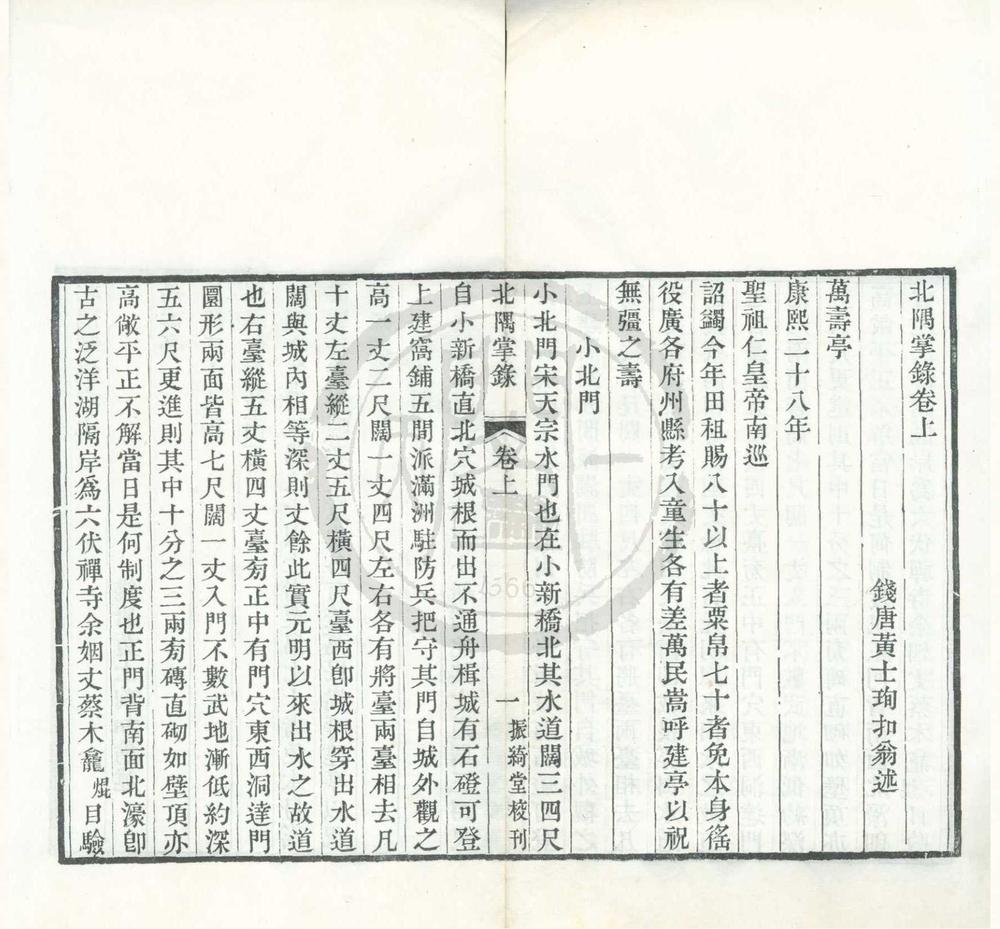 北隅掌錄卷上
錢唐黃士珣扣翁述
萬壽亭
康熙二十八年
聖祖仁皇帝南巡
詔蠲今年田租賜八十以上者粟帛七十者免本身徭
役廣各府州縣考入童生各有差萬民嵩呼建亭以祝
無疆之壽
小北門
小北門宋天宗水門也在小新橋北其水道闊三四尺
北隅掌錄 卷上 一 振綺堂校刊
自小新橋直北穴城根而出不通舟楫城有石磴可登
上建窩鋪五間派滿洲駐防兵把守其門自城外觀之
高一丈二尺闊一丈四尺左右各有將臺兩臺相去凡
十丈左臺縱二丈五尺橫四尺臺西卽城根穿出水道
闊與城內相等深則丈餘此實元明以來出水之故道
也右臺縱五丈橫四丈臺旁正中有門穴東西洞達門
圜形兩面皆高七尺闊一丈入門不數武地漸低約深
五六尺更進則其中十分之三兩旁磚直砌如壁頂亦
高敞平正不解當日是何制度也正門背南面北濠卽
古之泛洋湖隔岸爲六伏禪寺余姻丈蔡木龕焜目驗